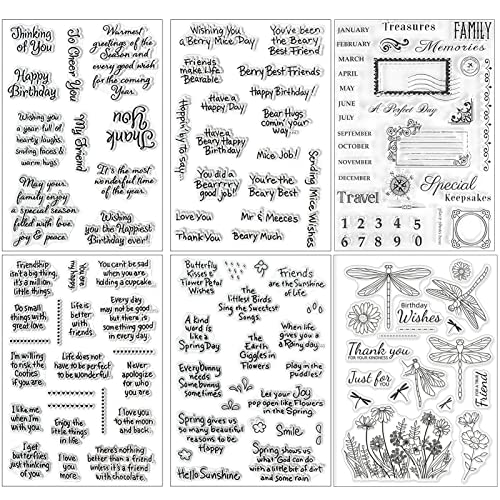 Thinking
of You
To Cheer You
Warmest
greetings of the
Season and
every good wish
for the coming
Year.
Happy
Birthday
Thank
You
Wishing you
a year full of
hearty laughs,
smiling faces &
warm hugs.
My Friend
It's the most
wonderful time
of the year.
May your
family enjoy
a special season
filled with love,
joy & peace.
Wishing
you the Happiest
Birthday ever!
Wishing You
a Berry Nice Day
You've been
the Beary
Best Friend
Friends
make Life
Bearable
Berry Best Friends
Have a
Happy Day
Happy Birthday!
Happy to say...
Have a
Beary Happy
Birthday
Bear Hugs
comin' your
way...
Nice Job!
You did a
Bearrrry
good job!
You're the
Beary Best
Sending Nice Things
Love You
Mr & Meeces
Thank You
Beary Much
Treasures
FAMILY
Memories
JANUARY
FEBRUARY
MARCH
APRIL
MAY
JUNE
JULY
A Perfect Day
SEPTEMBER
OCTOBER
NOVEMBER
DECEMBER
Travel
Special
Keepsakes
1 2 3 4 5
6 7 8 9 0
Friendship
isn't a big thing,
it's a million
little things.
You are
my happy
You can't be sad
when you are
holding a
cupcake.
Do small
things with
great love.
Life is
better
with
friends
Every day
may not be good
but there is
something good
in every day
I'm willing
to risk the
Cooties
if you are.
Life does not
have to be perfect
to be wonderful.
Never
apologize
for who
you are
I like me
when I'm
with you
Enjoy the
little things
in life
I love you
to the moon
and back.
I get
butterflies
just thinking
of you
I love
you
more
There's nothing
better than a friend
unless it's a friend
with chocolate.
Butterfly
Kisses &
Flower Petal
Wishes
Friends
are the Sunshine
of Life
The
Littlest Birds
Sing the Sweetest
Songs.
A kind
word is
like a
Spring Day
When life
gives you a
a Rainy day...
The
Earth
Giggles in
Flowers
play in the
puddles
Every Bunny
needs
Some bunny
sometimes
Let your Joy
pop open like Flowers
in the Spring
Spring gives us
so many beautiful
reasons to be
Happy
Smile
Hello Sunshine
Spring shows us
what God can do
with a little bit of dirt
and some rain
Birthday
Wishes
Thank you
FOR YOUR KINDNESS
Just for you
Friend